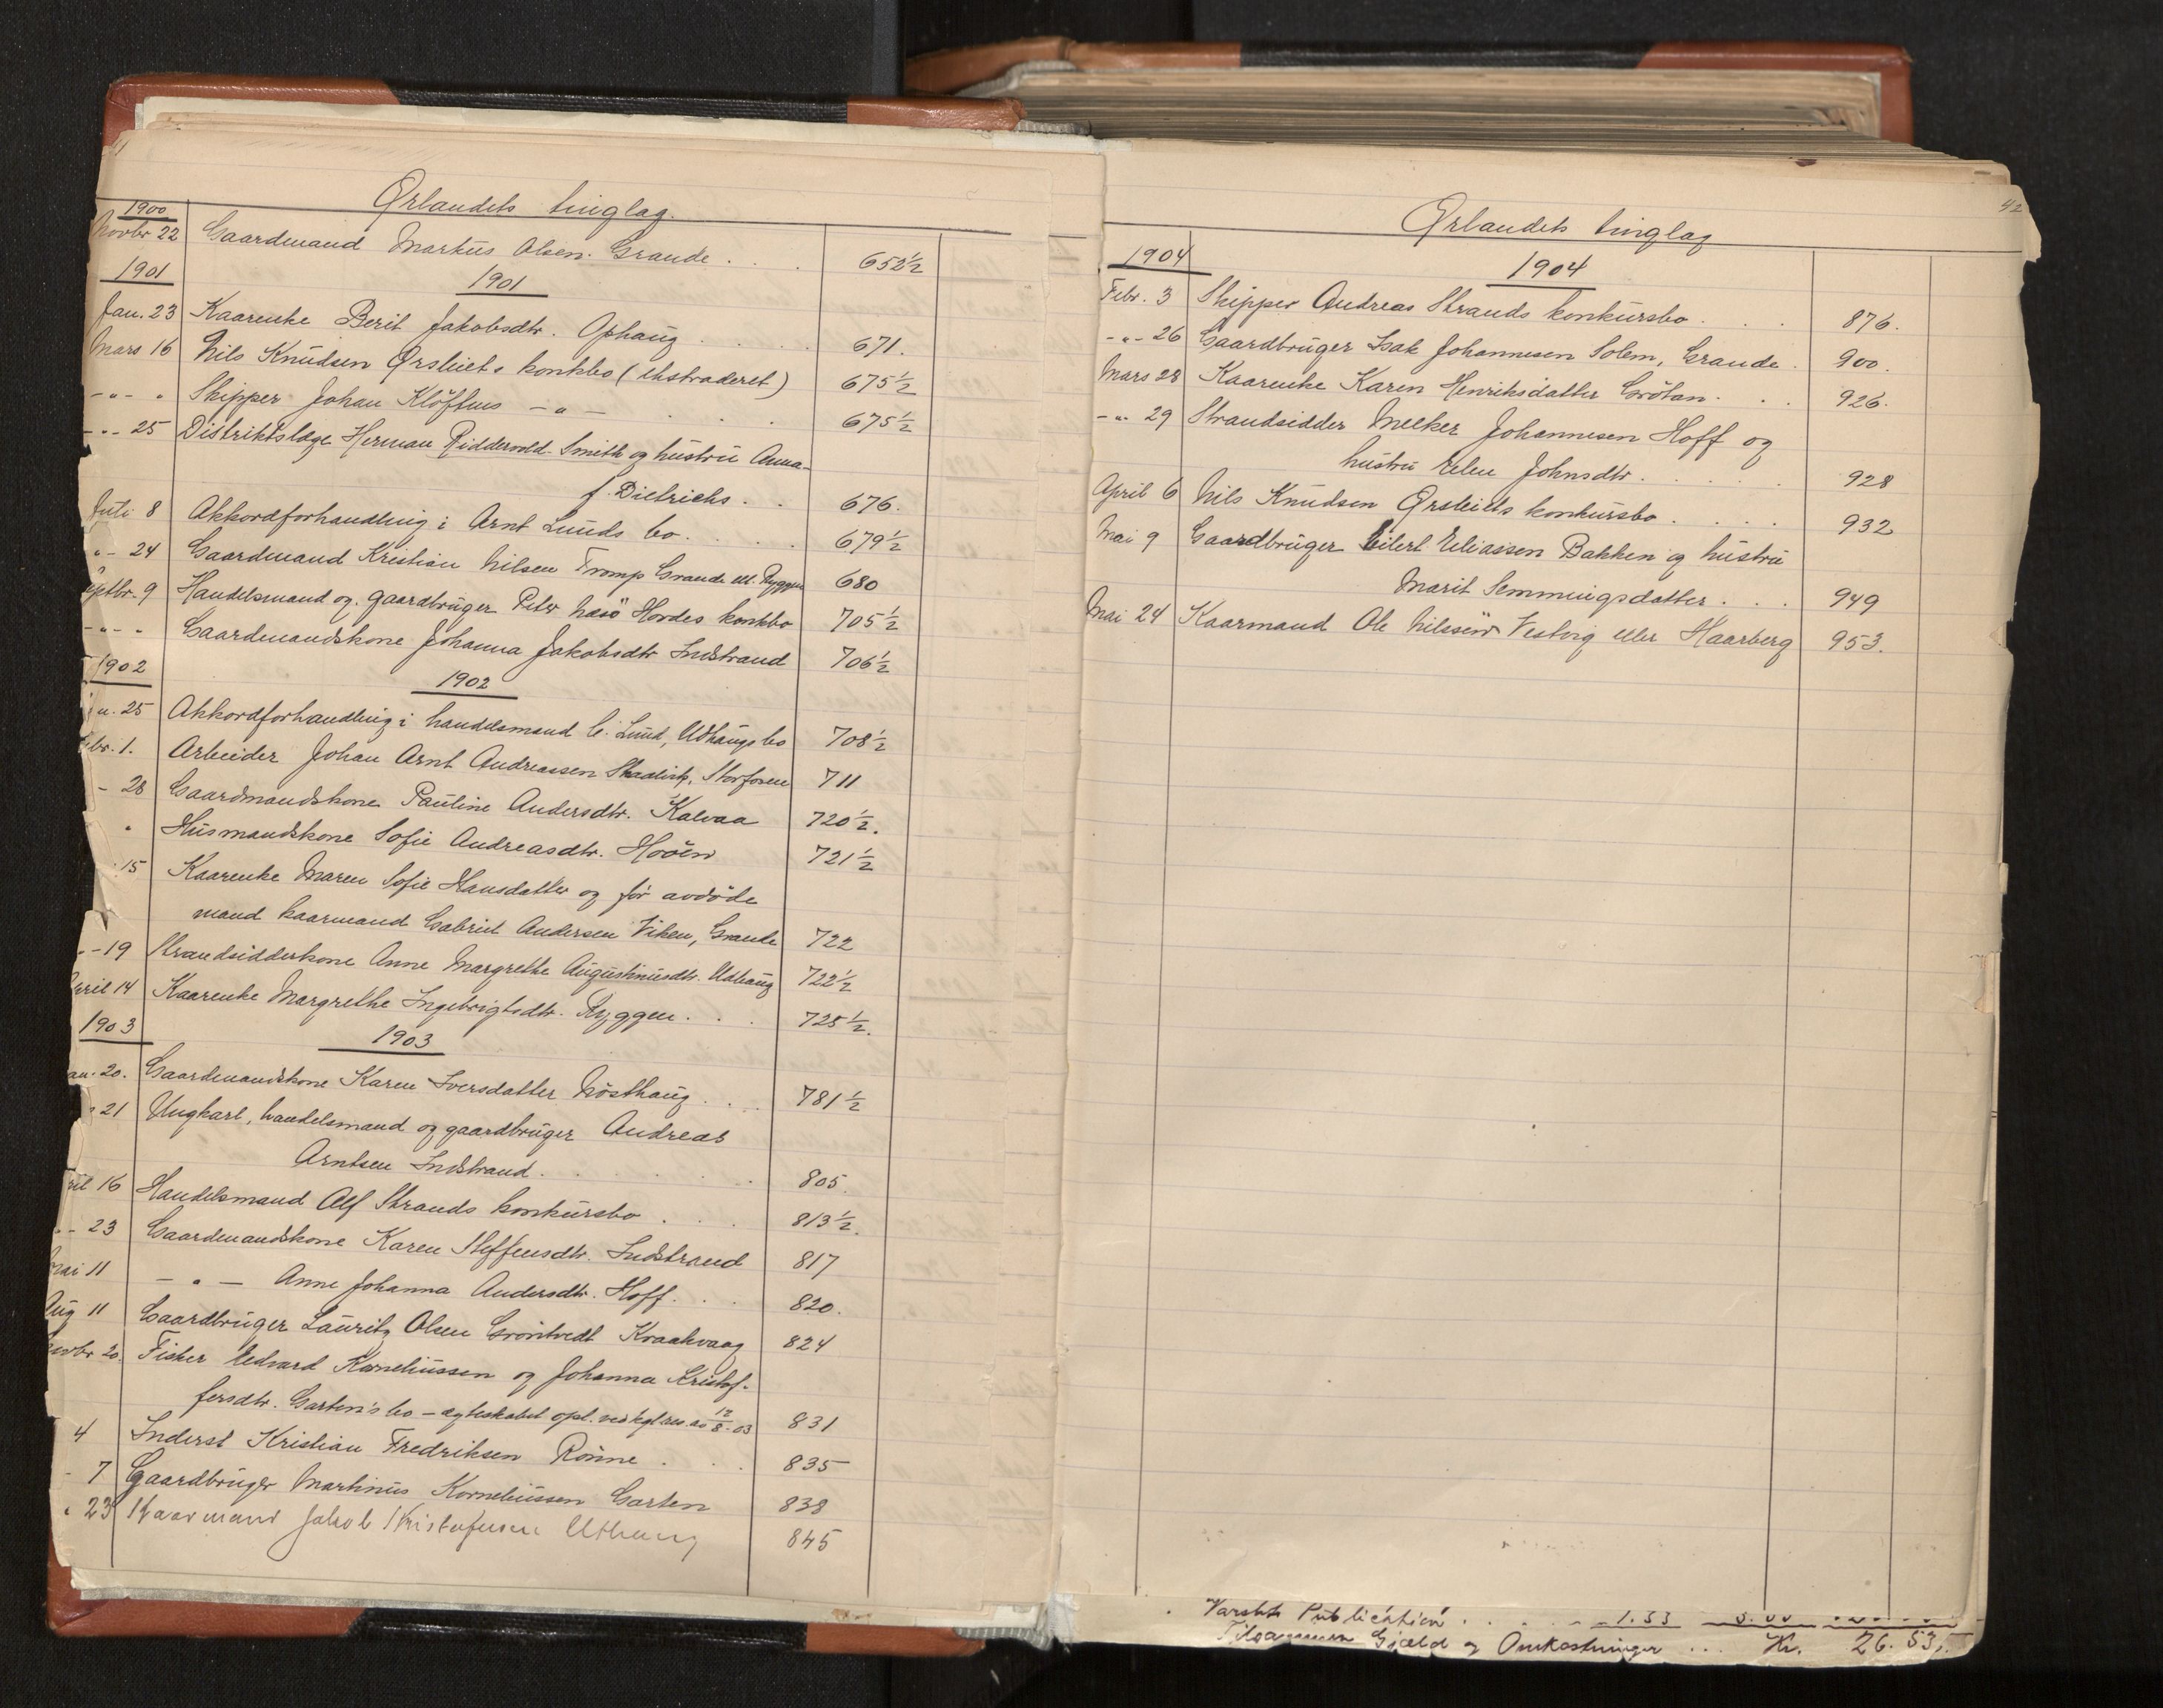 Ørlandets tinglag.
1900
Novbr 22 Gaardmand Markus Olsen Grande . . . 652½
1901 1901
Jan. 23 Kaarenke Berit Jakobsdtr. Ophaug . . . . 671.
Mars 16 Nils Knudsen Ørsleiets konkbo (ekstraderet) 675½
-"- " Skipper Johan Klöftens -"- . . . 675½
-"- 25 Distriktslæge Herman Riddervold Smith og hustru Anna
f. Dietrichs . . 676.
Juli 8 Akkordforhandling i Arnt Lunds bo. . . . 679½
"- 24 Gaardmand Kristian Nilsen Tromp Grande ell. Ryggen 680
Septbr. 9 Handelsmand og gaardbruger Peter Næsö Hovdes konkbo 705½
-"- " Gaardmandskone Johanna Jakobsdtr Indstrand 706½
1902 1902
Jan. 25 Akkordforhandling i handelsmand C. Lund, Udhaugs bo 708½
Febr. 1. Arbeider Johan Arnt Andreassen Skadirk, Storfosen 711
- 28 Gaardmandskone Pauline Andersdtr. Kalvaa 720½.
" Husmandskone Sofie Andreasdtr. Hovên 721½
15 Kaarenke Maren Sofie Hansdatter og før avdøde
mand kaarmand Gabriel Andersen Viken, Grande 722
"-19 Strandsidderkone Anne Margrethe Augustinusdtr. Udhaug 722½
April 14 Kaarenke Margrethe Ingebrigtsdtr. Ryggen. . . 725½.
1903 1903
Jan. 20. Gaardmandskone Karen Iversdatter Nösthaug . . . 781½
" 21 Ungkarl, handelsmand og gaardbruger Andreas
Arntsen Indstrand . . . . . 805.
April 16 Handelsmand Alf Strands konkursbo . . . 813½.
"- 23 Gaardmandskone Karen Steffensdtr. Indstrand 817
Mai 11 - " - Anne Johanna Andersdtr. Hoff. . . 820.
Aug 11 Gaardbruger Lauritz Olsen Gröntvedt Kraakvaag 824
Novbr 20. Fisker Edvard Korneliussen og Johanna Kristof-
fersdtr. Garten's bo - ægteskabet opl. ved kgl. res. av 12/8-03 831
4 Inderst Kristian Fredriksen Rönne . . . 835
- 7 Gaardbruger Martinus Korneliussen Garten 838
" 23 Kaarmand Jakob Kristofersen Uthaug 845
42
Ørlandets tinglag
1904 1904
Febr. 3 Skipper Andreas Strands konkursbo . . . 876.
-"- 26 Gaardbruger Isak Johannesen Solem, Grande . 900.
Mars 28 Kaarenke Karen Henriksdatter Grötan . . . 926.
-"- 29 Strandsidder Melker Johannesen Hoff og
hustru Elen Johnsdtr. . . . . 928
April 6 Nils Knudsen Ørsleiets konkursbo . . . . 932
Mai 9 Gaardbruger Eilert Eliassen Bakken og hustru
Marit Semmingsdatter . . . 949
Mai 24 Kaarmand Ole Nilssen Vestvig eller Haarberg 953.
Varslets Publication . . . 1.33
Gjæld og Omkostninger . . . Kr. 26.53.